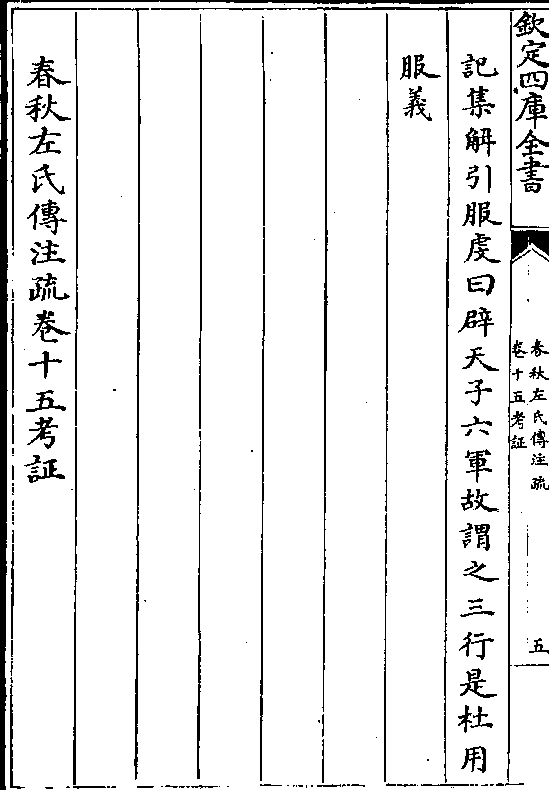 欽定四庫全書
春秋左氏傳注疏
卷十五考証
五
記集解引服虔曰辟天子六軍故謂之三行是杜用
服義
春秋左氏傳注疏卷十五考証